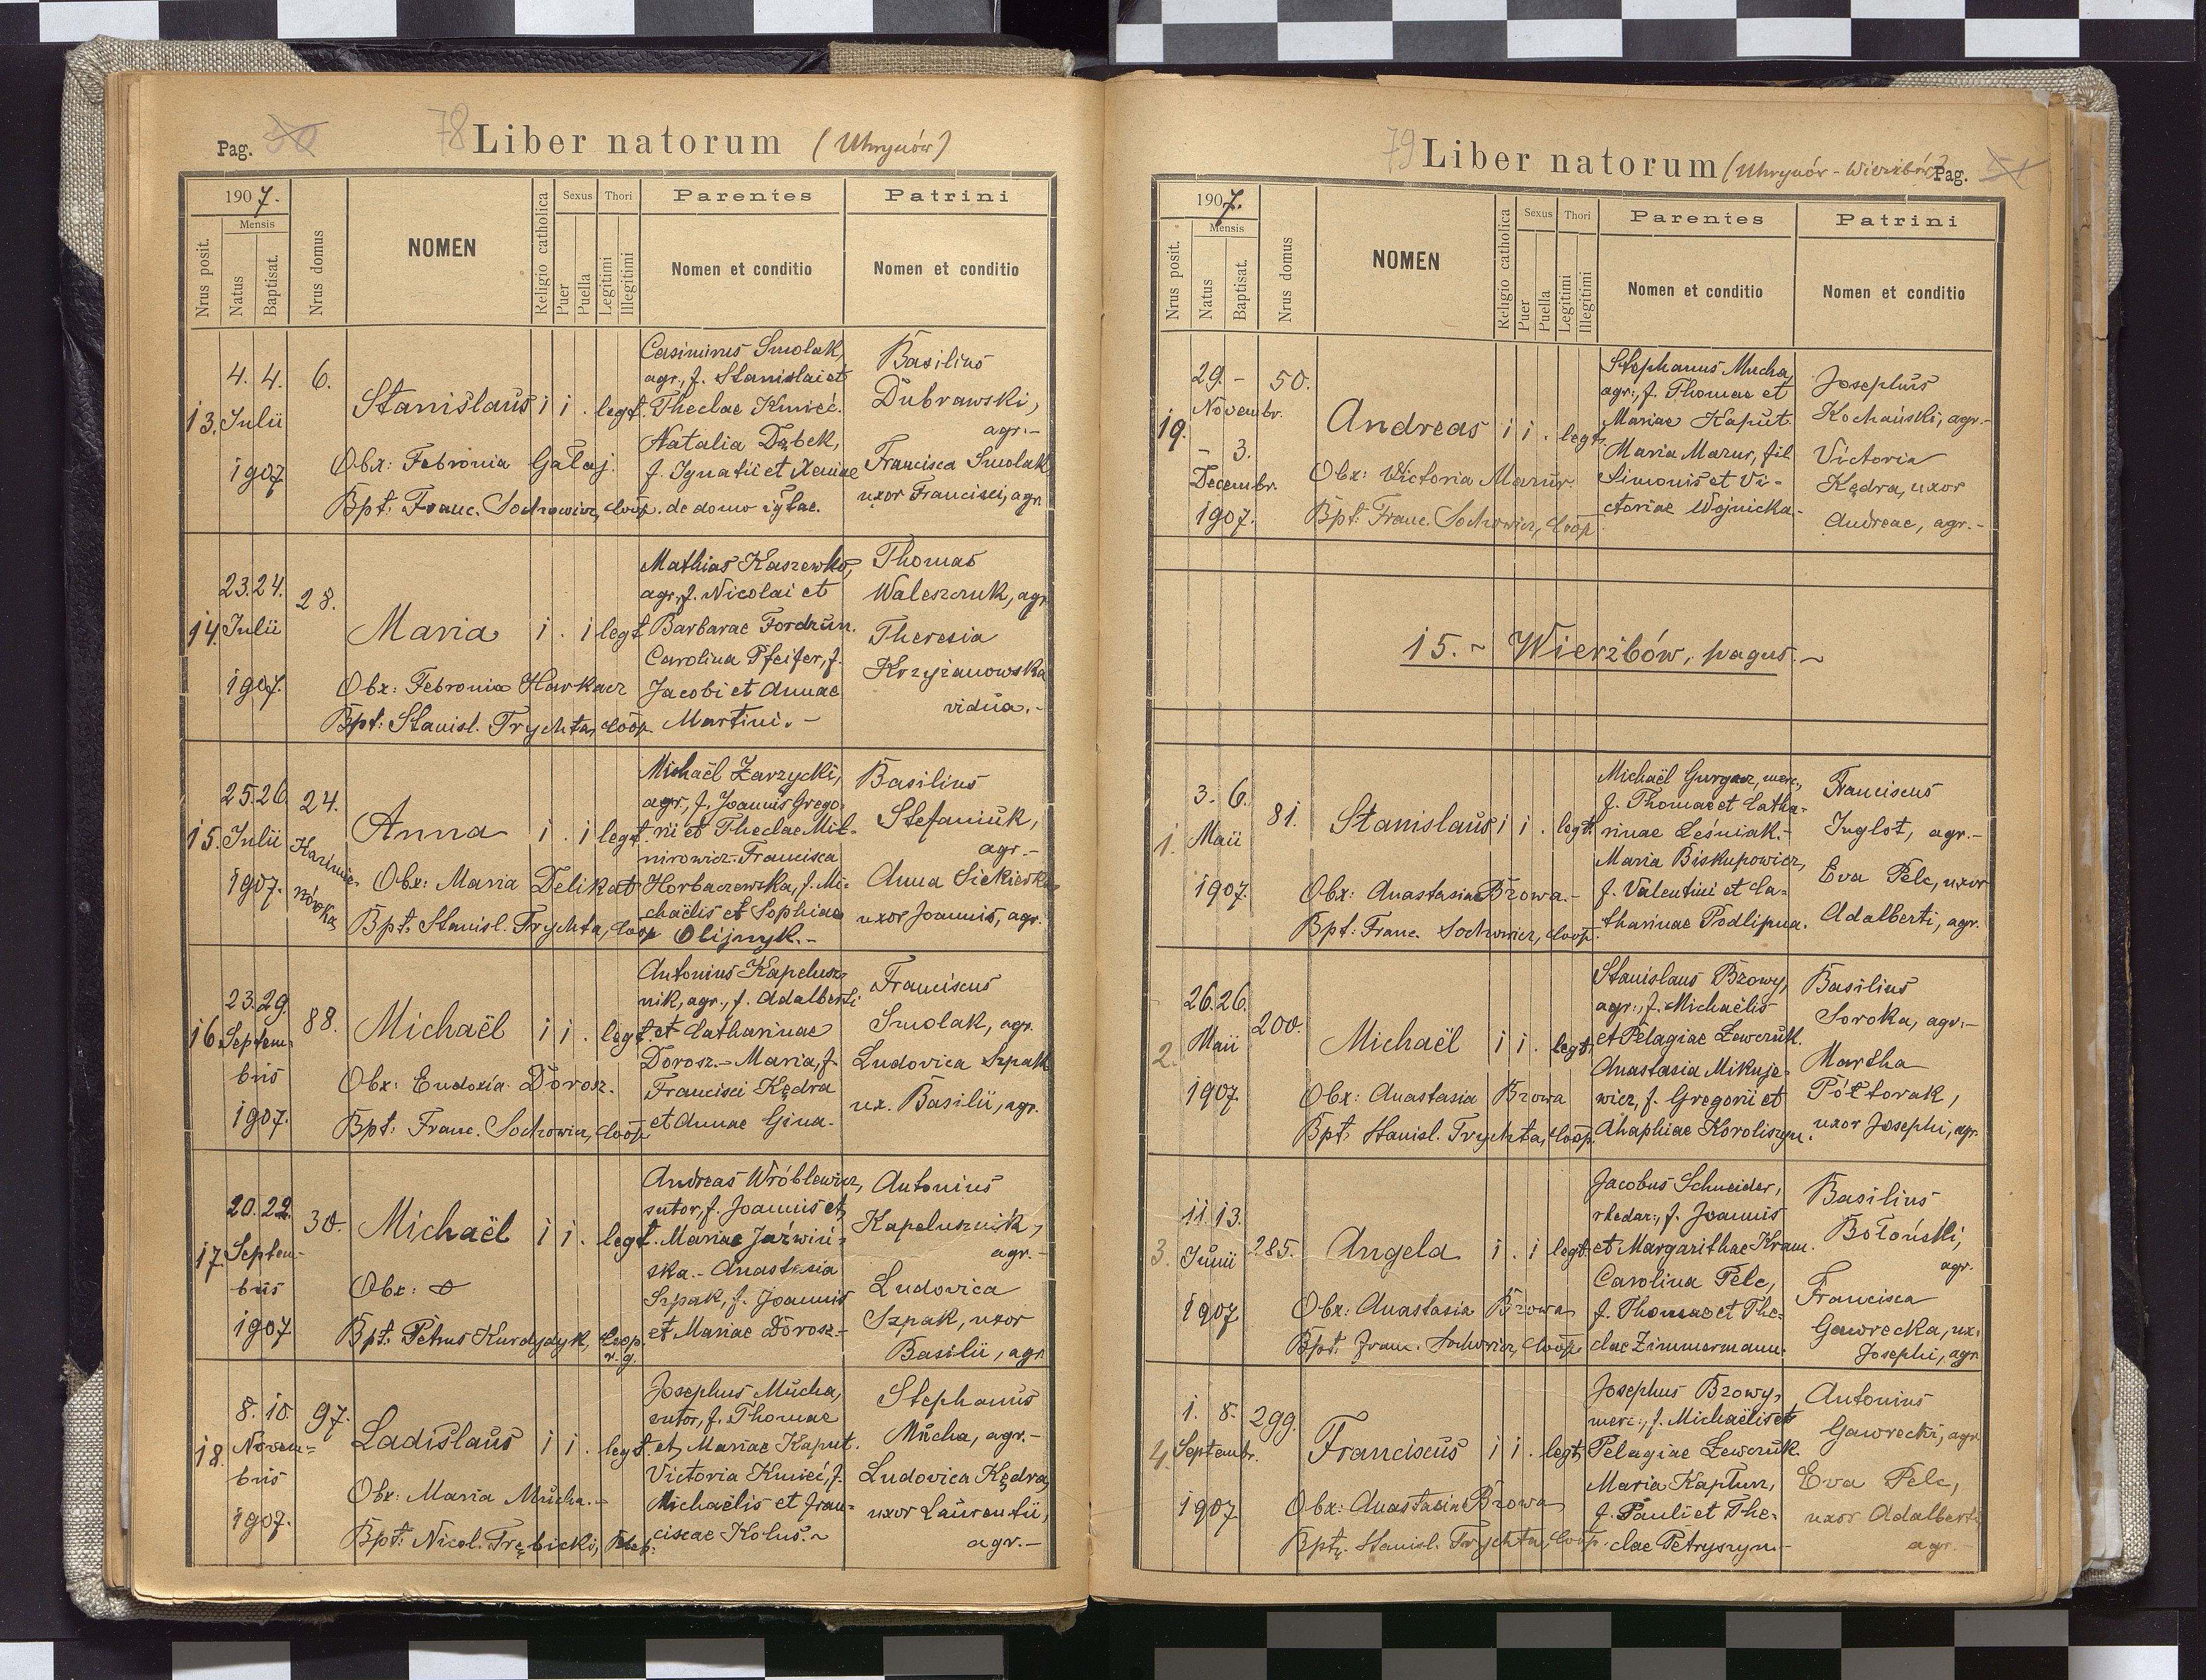 Pag. 50 78 Liber natorum (Uhrynów)
1907.
Mensis
Nrus posit.
Natus
Baptisat.
Nrus domus
NOMEN
Religio catholica
Sexus
Puer
Puella
Thori
Legitimi
Illegitimi
Parentes
Nomen et conditio
Patrini
Nomen et conditio
13.
4. 4.
Julii
1907
6.
Stanislaus i i . legt.
Obx: Febronia Gałaj.
Bpt: Franc. Sochowicz, Coop.
Casimirus Smolak,
agr., f. Stanislai et
Theclae Kmieć.
Natalia Dąbek,
f. Ignatii et Xeniae
de domo igtae.
Basilius
Dubrawski,
agr.-
Francisca Smolak
uxor Francisci, agr.
14.
23. 24.
Julii
1907.
28.
Maria i . i legt.
Obx: Febronia Harkacz
Bpt: Stanisl. Trychta, Coop.
Mathias Kaszewko,
agr., f. Nicolai et
Barbarae Fordzun.
Carolina Pfeifer, f.
Jacobi et Annae
Martini.-
Thomas
Waleszczuk, agr.
Theresia
Krzyżanowska
vidua.-
15.
25. 26.
Julii
1907.
24.
Kazimie-
rówka
Anna i . i legt.
Obx: Maria Delikat
Bpt: Stanisl. Trychta, Coop
Michaël Zarzycki,
agr., f. Joannis Grego-
rii et Theclae Mit-
nirowicz. Francisca
Horbaczewska, f. Mi-
chaëlis et Sophiae
Olijnyk.-
Basilius
Stefaniuk,
agr.-
Anna Siekierka
uxor Joannis, agr.
16.
23. 29.
Septem-
bris
1907.
88.
Michaël i i . legt.
Obx: Eudoxia Dorosz.
Bpt: Franc. Sochowicz, Coop.
Antonius Kapelusz-
nik, agr., f. Adalberti
et Catharinae
Dorosz.- Maria, f.
Francisci Kędra
et Annae Gina.
Franciscus
Smolak, agr.
Ludovica Szpak
ux. Basilii, agr.
17.
20. 22.
Septem-
bris
1907
30.
Michaël i i . legt.
Obx:
Bpt: Petrus Kurdydyk, Coop.
r. g.
Andreas Wróblewicz,
sutor, f. Joannis et
Mariae Jaźwiń-
ska.- Anastasia
Szpak, f. Joannis
et Mariae Dorosz.-
Antonius
Kapelusznik,
agr.-
Ludovica
Szpak, uxor
Basilii, agr.
18.
8. 10.
Novem-
bris
1907.
97.
Ladislaus i i . legt.
Obx: Maria Mucha.-
Bpt: Nicol. Trębicki,
Josephus Mucha,
sutor, f. Thomae
et Mariae Kaput.
Victoria Kmieć, f.
Michaëlis et Fran-
ciscae Koluś.
Stephanus
Mucha, agr.-
Ludovica Kędra,
uxor Laurentii,
agr.-
79 Liber natorum (Uhrynów - Wierzbów) Pag. 51
1907.
Mensis
Nrus posit.
Natus
Baptisat.
Nrus domus
NOMEN
Religio catholica
Sexus
Puer
Puella
Thori
Legitimi
Illegitimi
Parentes
Nomen et conditio
Patrini
Nomen et conditio
19.
29. -
Novembr.
- 3.
Decembr.
1907.
50.
Andreas i i . legt.
Obx: Victoria Mazur.
Bpt: Franc. Sochowicz, Coop.
Stephanus Mucha,
agr., f. Thomae et
Mariae Kaput.
Maria Mazur, fil.
Simonis et Vi-
ctoriae Wojnicka.-
Josephus
Kochański, agr.-
Victoria
Kędra, uxor
Andreae, agr.-
15.- Wierzbów, pagus.-
1.
3. 6.
Maii
1907.
81.
Stanislaus i i . legt.
Obx: Anastasia Brzowa.-
Bpt: Franc. Sochowicz, Coop.
Michaël Gurgacz, merc.,
f. Thomae et Catha-
rinae Leśniak.-
Maria Biskupowicz,
f. Valentini et Ca-
tharinae Podlipna.
Franciscus
Inglot, agr.-
Eva Pelc, uxor
Adalberti, agr.
2.
26. 26.
Maii
1907.
200.
Michaël i i . legt.
Obx: Anastasia Brzowa
Bpt: Stanisl. Trychta, Coop.
Stanislaus Brzowy,
agr., f. Michaëlis
et Pelagiae Lewczuk.
Anastasia Mikuje-
wicz, f. Gregorii et
Ahaphiae Koroliszyn.
Basilius
Soroka, agr.-
Martha
Półtorak,
uxor Josephi, agr.
3.
11. 13.
Junii
1907
285.
Angela i . i legt.
Obx: Anastasia Brzowa
Bpt: Franc. Sochowicz, Coop.
Jacobus Schneider,
rhedar., f. Joannis
et Margarithae Kram.
Carolina Pelc,
f. Thomae et The-
clae Zimmermann.
Basilius
Botoński,
agr.
Francisca
Gawrecka, ux.
Josephi, agr.
4.
1. 8.
Septembr.
1907.
299.
Franciscus i i . legt.
Obx: Anastasia Brzowa
Bpt: Stanisl. Trychta, Coop.
Josephus Brzowy,
merc., f. Michaëlis et
Pelagiae Lewczuk.
Maria Kaptun,
f. Pauli et The-
clae Petryszyn.-
Antonius
Gawrecki, agr.
Eva Pelc,
uxor Adalberti
agr.-